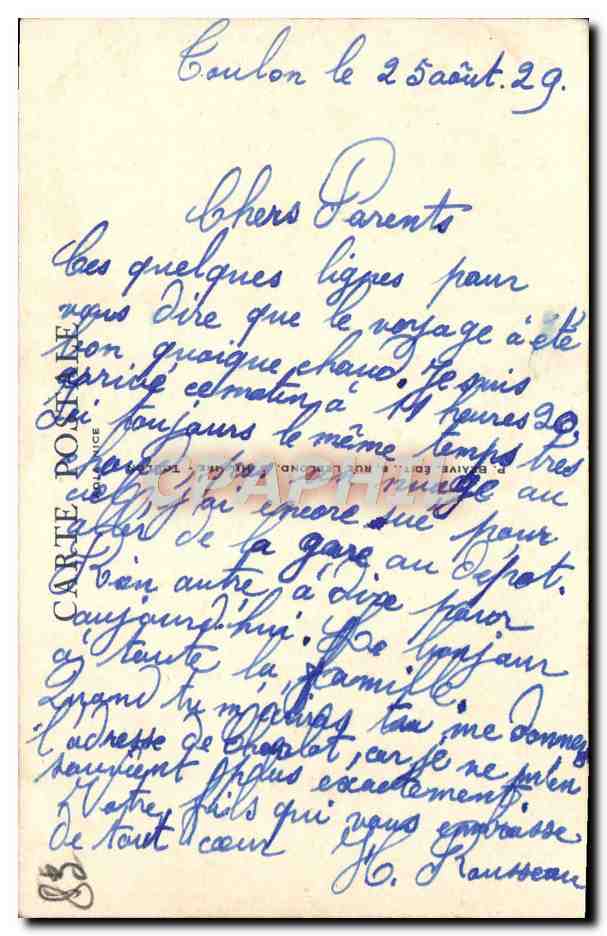 Toulon le 25 août. 29.
Chers Parents
Ces quelques lignes pour
vous dire que le voyage à été
bon quoique chaud. Je suis
arrivé ce matin à 11 heures 20,
ici toujours le même temps très
nuage au
ciel, j'ai encore sué pour
aller de la gare au dépot.
Rien autre à dire pour
aujourd'hui. Le bonjour
à toute la famille.
Quand tu m'écriras tu me donnez
l'adresse de Charlot, car je ne m'en
souvient plus exactement.
Votre fils qui vous embrasse
de tout cœur H. Rousseau
CARTE POSTALE
P. BRAIVE, EDIT., 8, RUE
- TOULON
CPARAMA
83